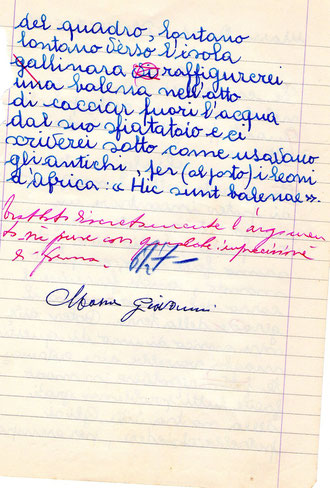 del quadro, lontano
lontano verso l'isola
gallinara raffigurerei
una balena nell'atto
di cacciar fuori l'acqua
dal suo sfiatatoio e ci
scriverei sotto come usavano
gli antichi, per (al posto) i leoni
d'africa: « Hic sunt balenae ».
trattato discretamente l'argomen
to sia pure con qualche imprecisione
di forma.